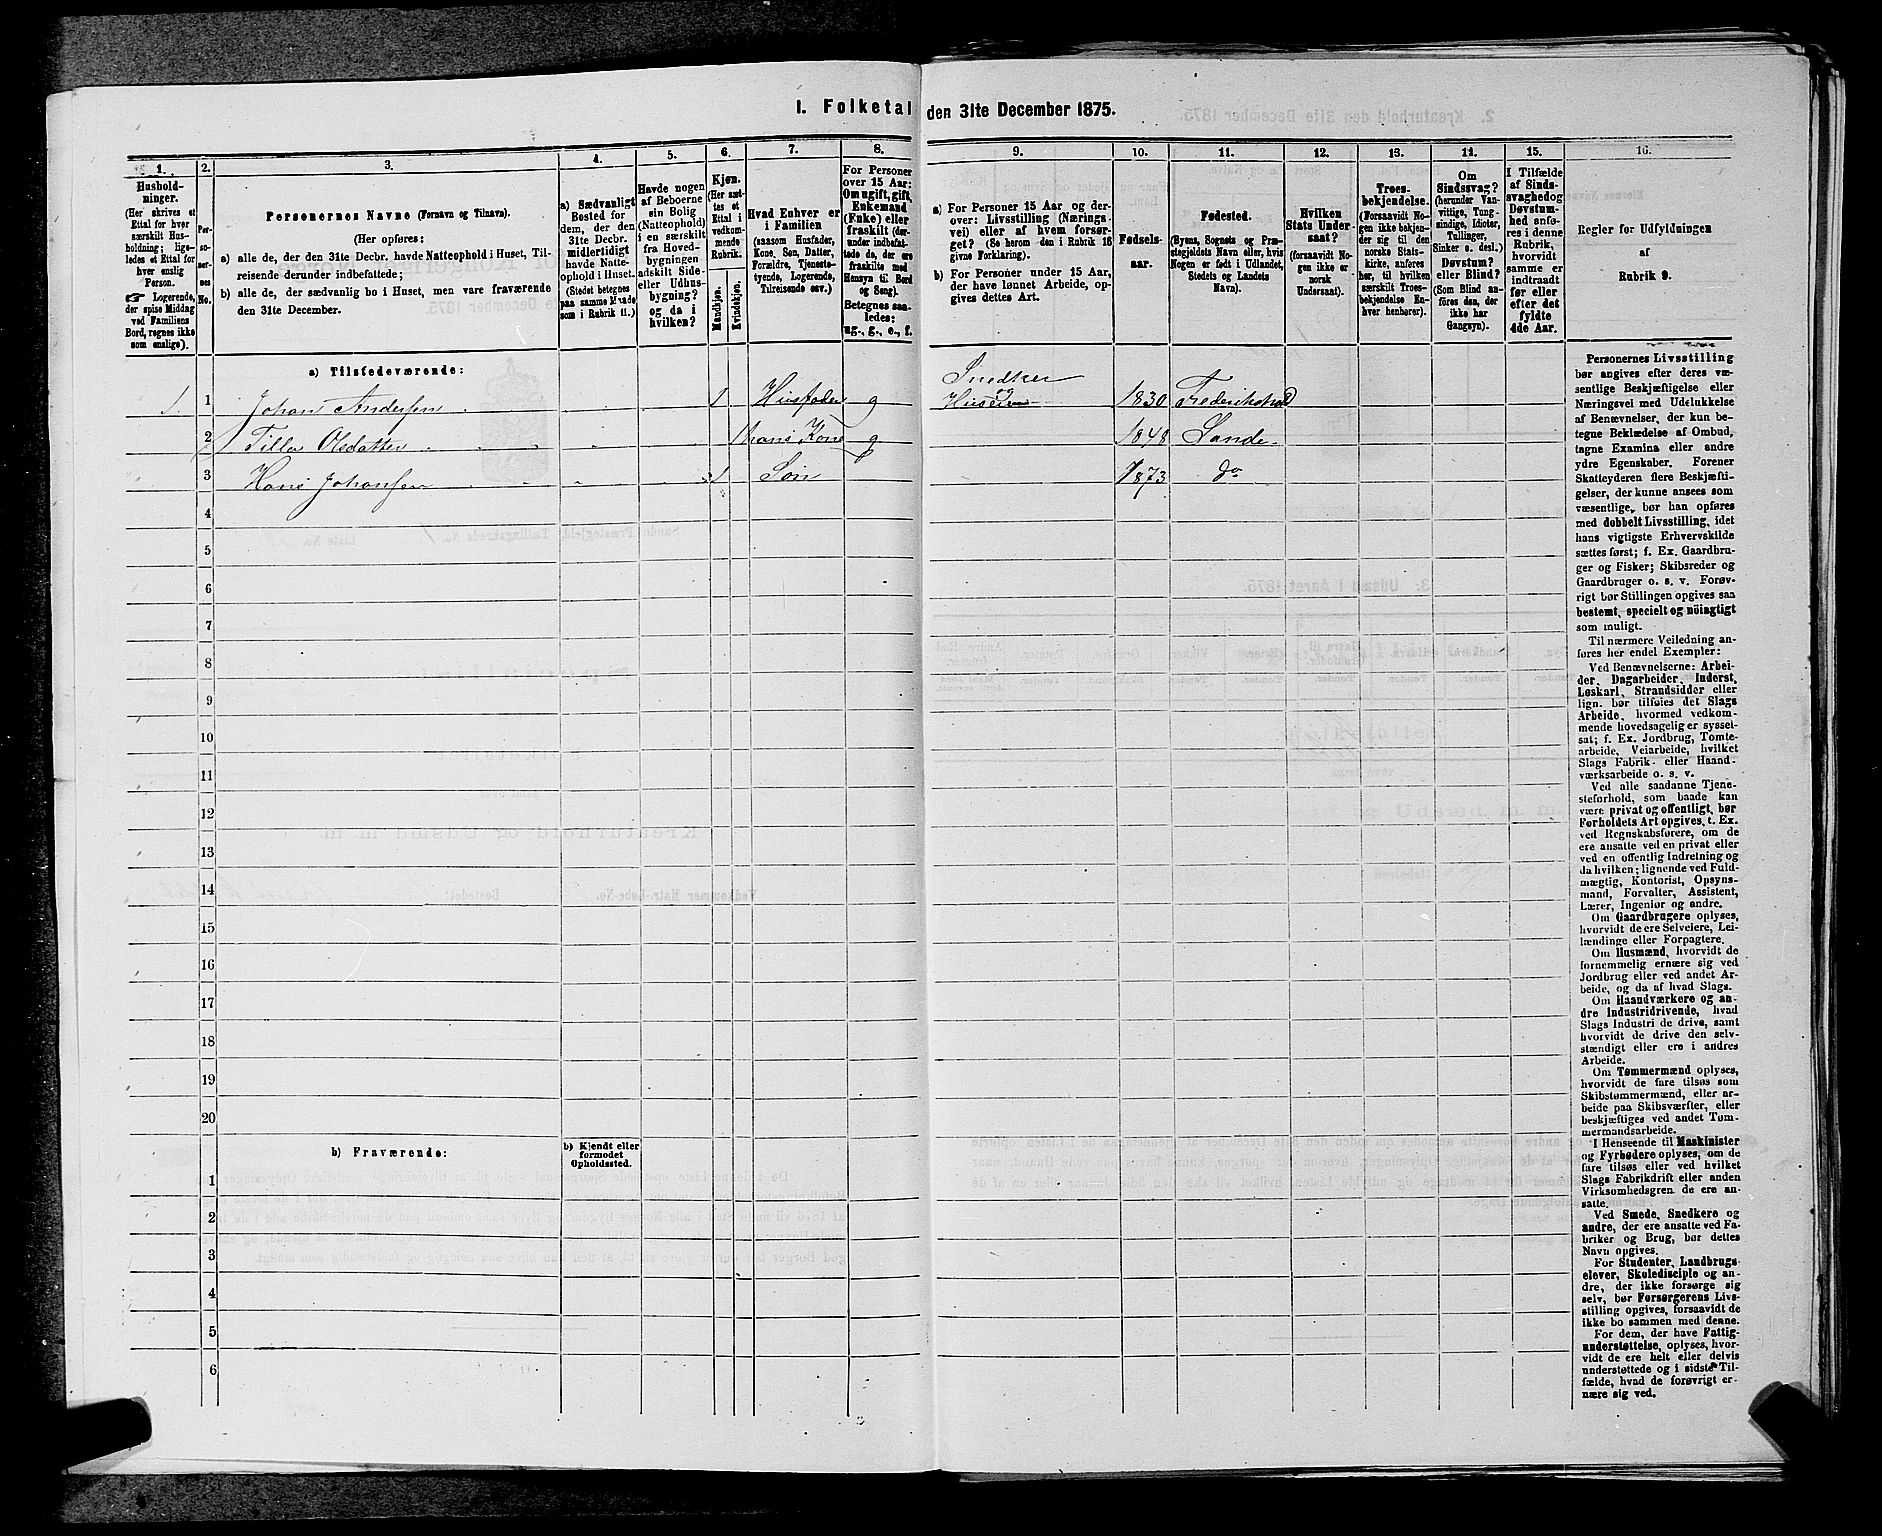 1. Folketal den 31te December 1875.
1.
2.
3.
4.
5.
6.
7.
8.
9.
10.
11.
12.
13.
14.
15.
16.
Hushold-
ninger.
(Her skrives et
Ettal for hver
særskilt Hus-
holdning; lige-
ledes et Ettal for
hver enslig
Person.
☞ Logerende,
der spise Middag
ved Familiens
Bord, regnes ikke
som enslige).
Per-
so-
ner-
nes
No.
Personernes Navne (Fornavn og Tilnavn).
(Her opføres:
a) alle de, der den 31te Decbr. havde Natteophold i Huset, Til-
reisende derunder indbefattede;
b) alle de, der sædvanlig bo i Huset, men vare fraværende
den 31te December.
a) Sædvanligt
Bosted for
dem, der den
31te Decbr.
midlerlidigt
havde Natte-
ophold i Huset.
(Stedet betegnes
paa samme Maade
som i Rubrik 11.)
Havde nogen
af Beboerne
sin Bolig
(Natteophold)
i en særskilt
fra Hoved-
bygningen
adskilt Side-
eller Udhus-
bygning?
og da i
hvilken?
Kjøn.
(Her sæt-
tes et
Ettal i
vedkom-
mende
Rubrik.
Mandkjøn.
Kvindekjøn.
Hvad Enhver er
i Familien
(saasom Husfader,
Kone, Søn, Datter,
Forældre, Tjeneste-
tyende, Logerende,
Tilreisende osv.)
For Personer
over 15 Aar:
Om ugift, gift,
Enkemand
(Enke) eller
fraskilt (der-
under indbefat-
tede de, der ere
fraskilte med
Hensyn til Bord
og Seng).
Betegnes saa-
ledes:
ug., g., e., f.
a) For Personer 15 Aar og der-
over: Livsstilling (Nærings-
vei) eller af hvem forsør-
get? (Se herom den i Rubrik 16
givne Forklaring).
b) For Personer under 15 Aar,
der have lønnet Arbeide, op-
gives dettes Art.
Fødsels-
aar.
Fødested.
(Byens, Sognets og Præ-
stegjeldets Navn eller, hvis
Nogen er født i Udlandet,
Stedets og Landets
Navn).
Hvilken
Stats Under-
saat?
(forsaavidt No-
gen ikke er
norsk
Undersaat).
Troes-
bekjendelse.
(Forsaavidt No-
gen ikke bekjen-
der sig til den
norske Stats-
kirke, anføres
her, til hvilken
særskilt Troes-
bekjendelse En-
hver henhører).
Om
Sindssvag?
(herunder Van-
vittige, Tung-
sindige, Idioter,
Tullinger,
Sinker o. desl.)
Døvstum?
eller Blind?
(Som Blind an-
føres den, der
ikke har
Gangsyn).
I Tilfælde
af Sinds-
svaghed og
Døvstum-
hed anfø-
res i denne
Rubrik,
hvorvidt
samme er
indtraadt
før eller
efter det
fyldte
4de Aar.
Regler for Udfyldningen
af
Rubrik 9.
a) Tilstedeværende:
1 1 Johan Andersen 1 Husfader g Snedker og 1830 Frederikshald
2 Tilla Olsdatter 1 hans Kone g 1848 Sande
3 Hans Johansen 1 Søn 1873 do
4
5
6
7
8
9
10
11
12
13
14
15
16
17
18
19
20
b) Fraværende:
b) Kjendt eller
formodet
Opholdssted.
1
2
3
4
5
6
Personernes Livsstilling
bør angives efter deres væ-
sentlige Beskjæftigelse eller
Næringsvei med Udelukkelse
af Benævnelser, der kun be-
tegne Beklædelse af Ombud,
tagne Examina eller andre
ydre Egenskaber. Forener
Skatteyderen flere Beskjæfti-
gelser, der kunne ansees som
væsentlige, bør han opføres
med dobbelt Livsstilling, idet
hans vigtigste Erhvervskilde
sættes først; f. Ex. Gaardbru-
ger og Fisker; Skibsreder og
Gaardbruger o. s. v. Forøv-
rigt bør Stillingen opgives saa
bestemt, specielt og nöiagtigt
som muligt.
Til nærmere Veiledning an-
føres her endel Exempler:
Ved Benævnelserne: Arbei-
der, Dagarbeider, Inderst,
Løskarl, Strandsidder eller
lign. bør tilføies det Slags
Arbeide, hvormed vedkom-
mende hovedsagelig er syssel-
sat; f. Ex. Jordbrug, Tomte-
arbeide, Veiarbeide, hvilket
Slags Fabrik- eller Haand-
værksarbeide o. s. v.
Ved alle saadanne Tjene-
steforhold, som baade kan
være privat og offentligt, bør
Forholdets Art opgives, t. Ex.
ved Regnskabsførere, om de
ere ansatte ved en privat eller
ved en offentlig Indretning og
da hvilken; lignende ved Fuld-
mægtig, Kontorist, Opsyns-
mand, Forvalter, Assistent,
Lærer, Ingeniør og andre.
Om Gaardbrugere oplyses,
hvorvidt de ere Selveiere, Lei-
lændinge eller Forpagtere.
Om Husmænd, hvorvidt de
fornemmelig ernære sig ved
Jordbrug eller ved andet Ar-
beide, og da af hvad Slags.
Om Haandværkere og an-
dre Industridrivende, hvad
Slags Industri de drive, samt
hvorvidt de drive den selv-
stændigt eller ere i andres
Arbeide.
Om Tømmermænd oplyses,
hvorvidt de fare tilsøs som
Skibstømmermænd, eller ar-
beide paa Skibsværfter, eller
beskjæftiges ved andet Tøm-
mermandsarbeide.
I Henseende til Maskinister
og Fyrbødere oplyses, om de
fare tilsøs eller ved hvilket
Slags Fabrikdrift eller anden
Virksomhedsgren de ere an-
satte.
Ved Smede, Snedkere og
andre, der ere ansatte ved Fa-
briker og Brug, bør dettes
Navn opgives.
For Studenter, Landbrugs-
elever, Skoledisciple og an-
dre, der ikke forsørge sig
selv, bør Forsørgerens Livs-
stilling opgives, forsaavidt de
ikke bo sammen med denne.
For dem, der have Fattig-
understøttelse, oplyses, hvor-
vidt de ere helt eller delvis
understøttede og i sidste Til-
fælde, hvad de forøvrigt er-
nære sig ved.